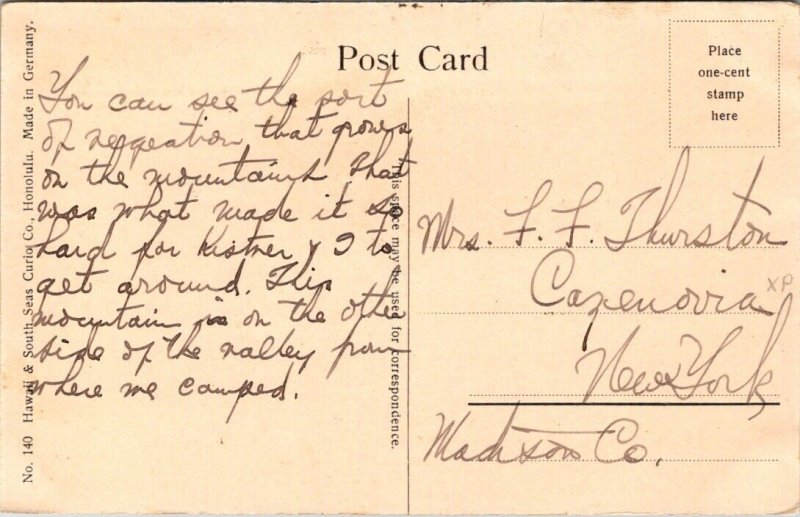 Post Card
Place
one-cent
stamp
here
No. 140 Hawaii & South Seas Curio Co., Honolulu. Made in Germany.
This space may be used for correspondence.
You can see the sort
of vegeation that grows
on the mountains. That
was what made it so
hard for Kistner & I to
get around. This
mountain is on the other
side of the valley from
where we camped.
Mrs. F. F. Thurston
Cazenovia
XP
New York
Madison Co.